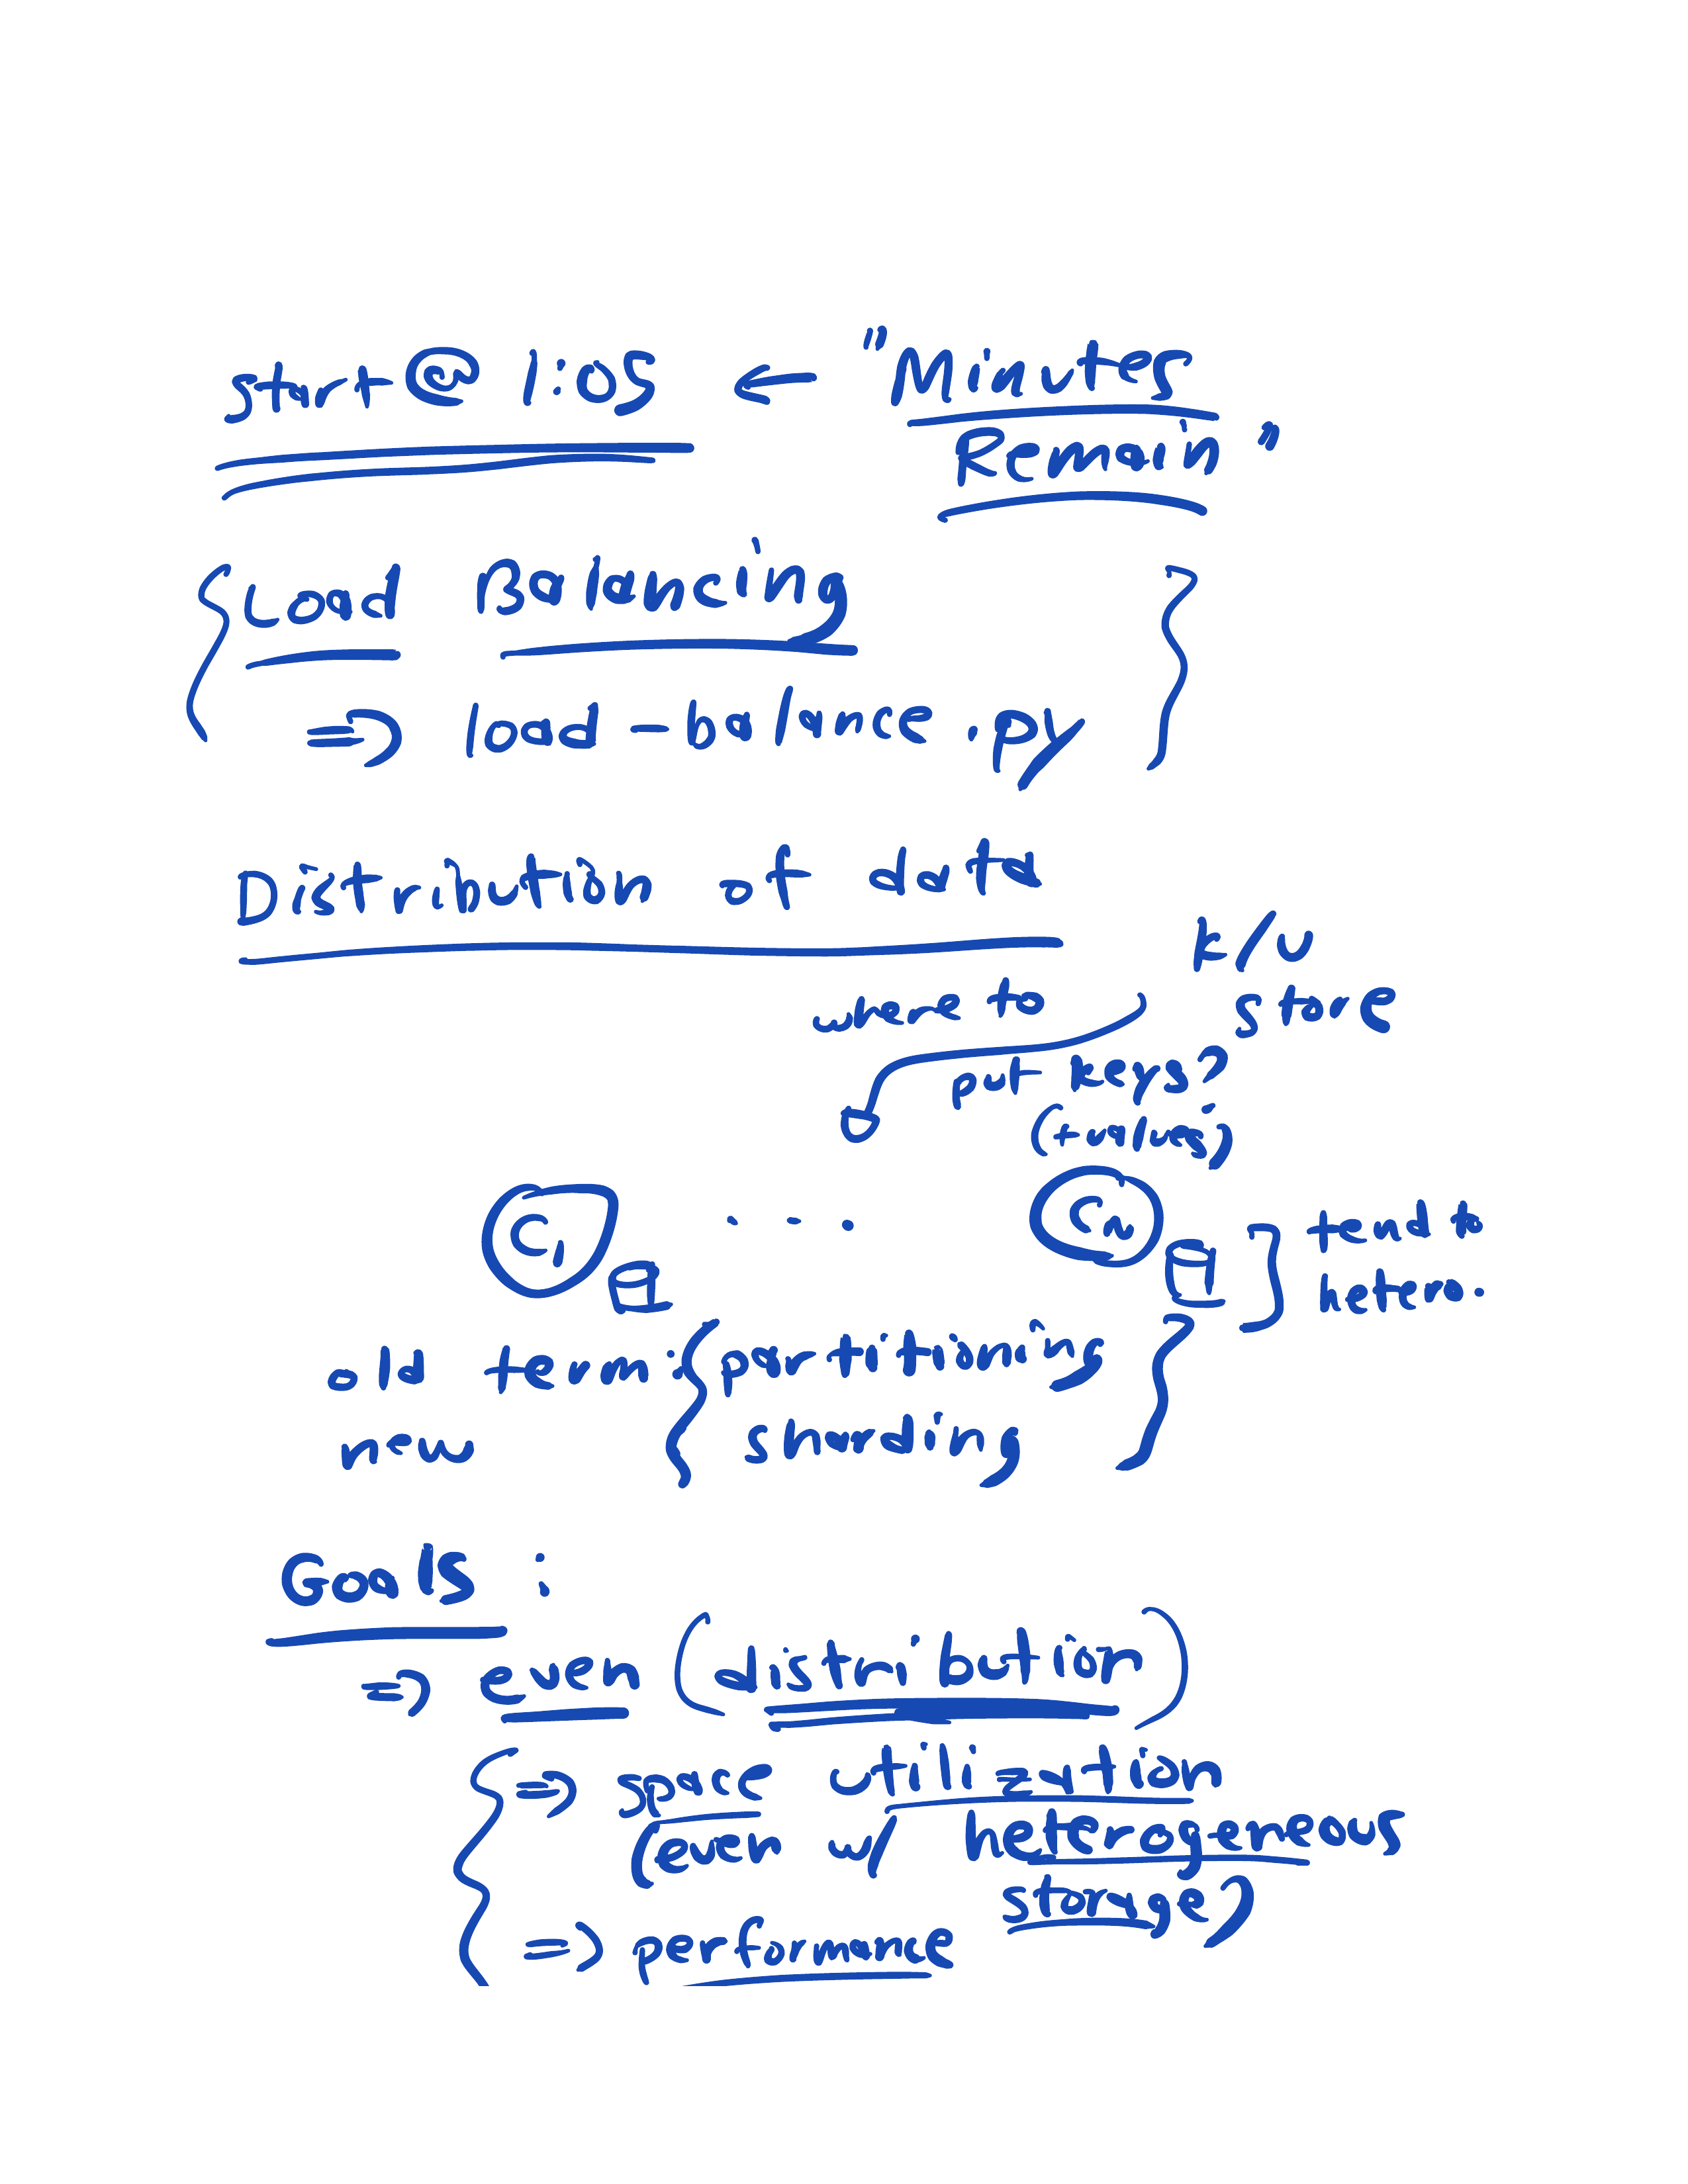 start @ 1:05 ← "Minutes
Remain"
Load Balancing
⇒ load-balance.py
Distribution of data
k/v
store
where to
put keys?
(+values)
C1 . . . CN
tend to
hetero.
old term: { partitioning }
new { sharding }
Goals :
⇒ even (distribution)
⇒ space utilization
(even w/ heterogeneous
storage)
⇒ performance